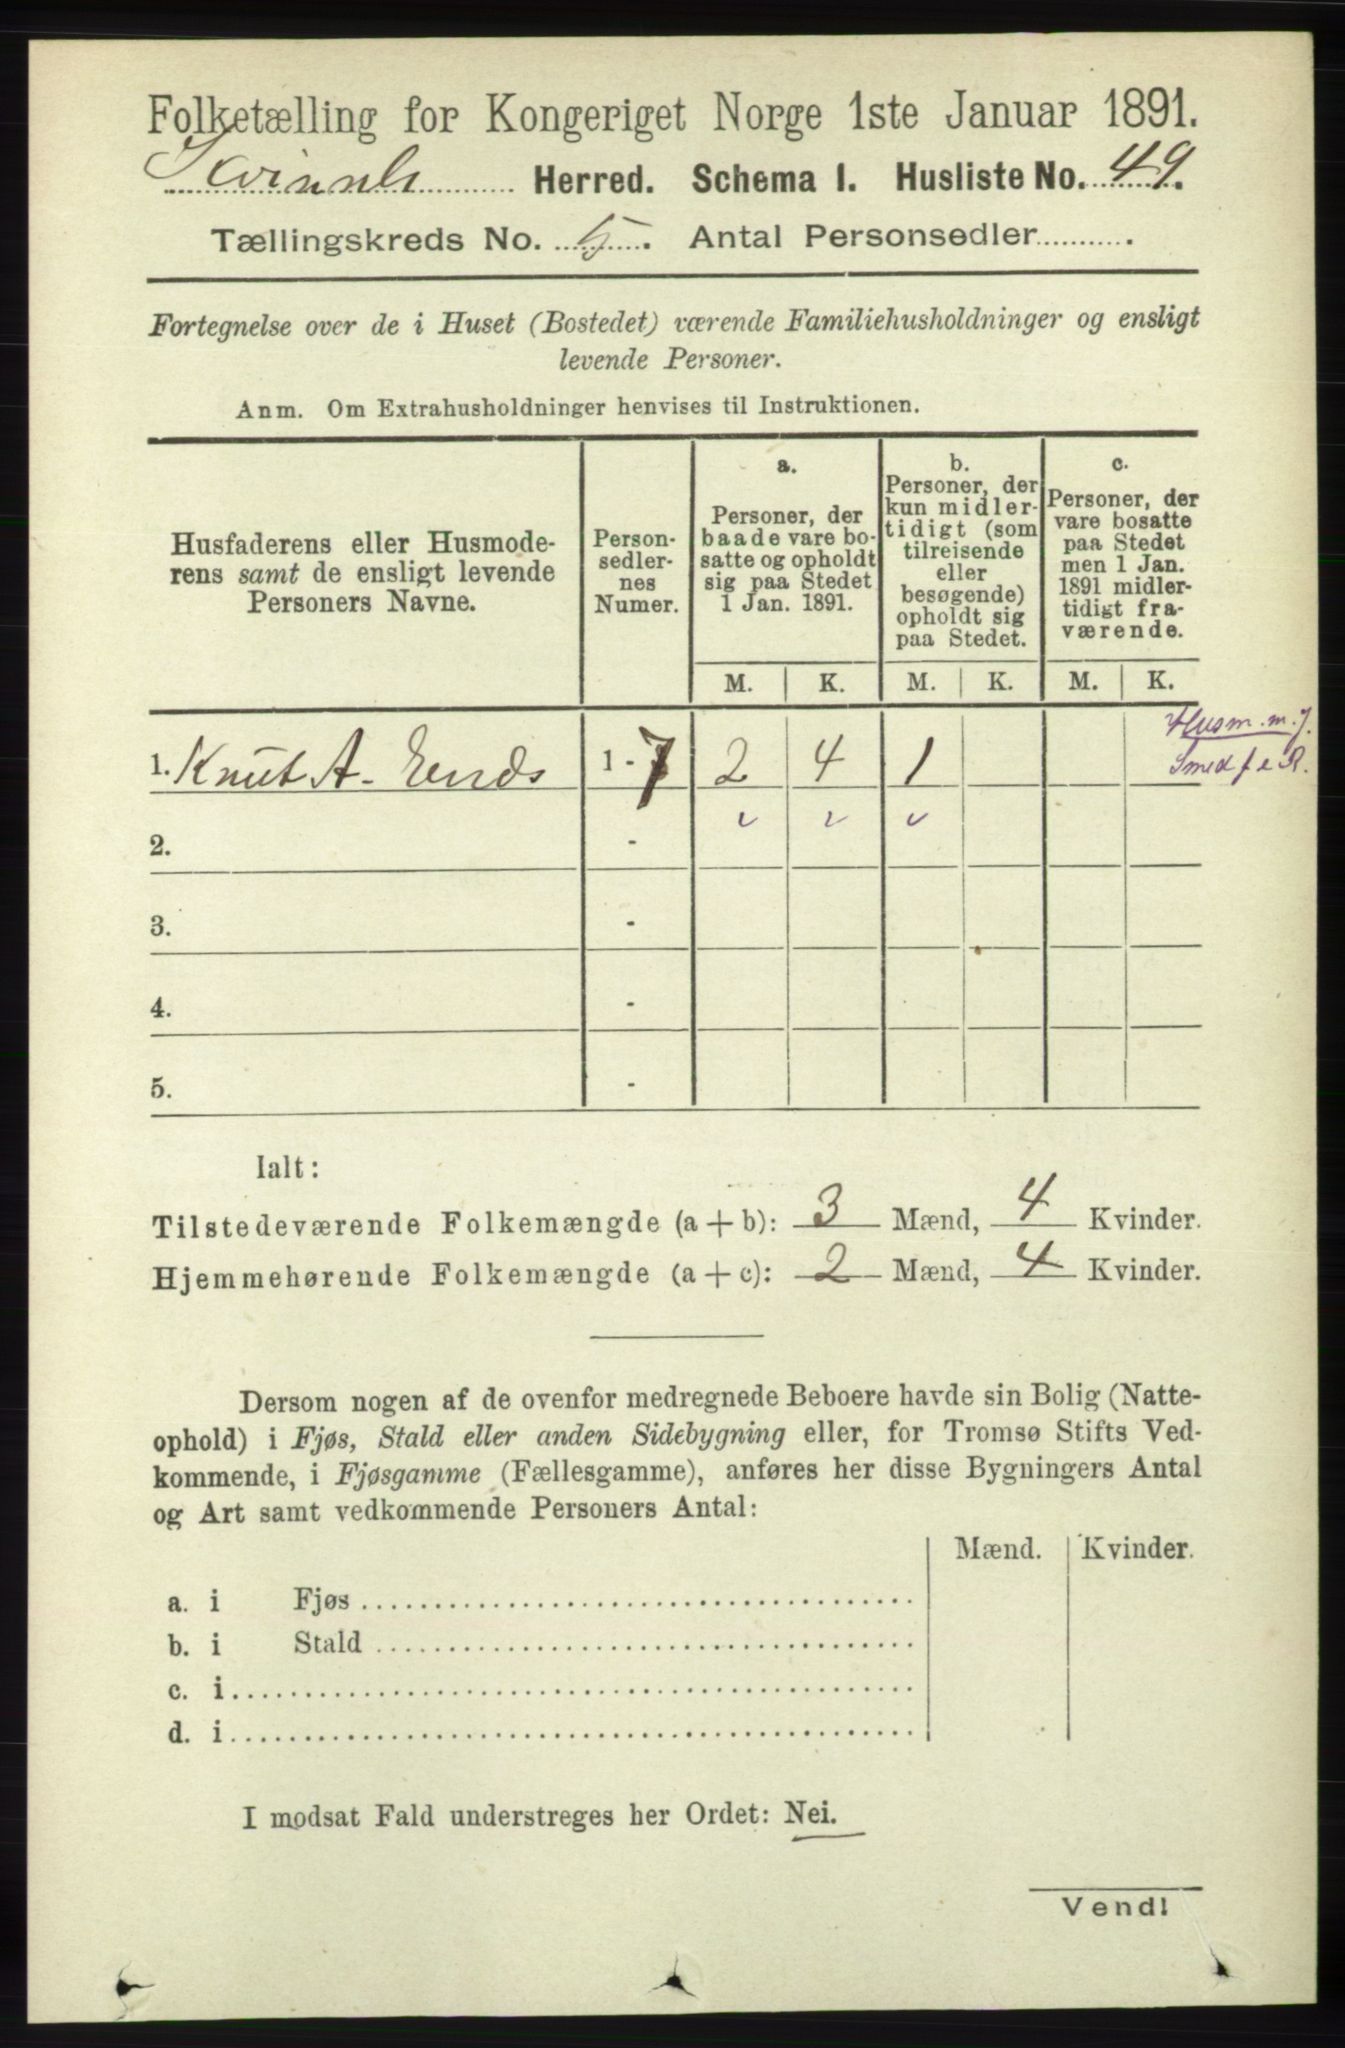 Folketælling for Kongeriget Norge 1ste Januar 1891.
Herred. Schema I. Husliste No. 49.
Tællingskreds No. 5. Antal Personsedler .
Fortegnelse over de i Huset (Bostedet) værende Familiehusholdninger og ensligt
levende Personer.
Anm. Om Extrahusholdninger henvises til Instruktionen.
Husfaderens eller Husmode-
rens samt de ensligt levende
Personers Navne.
Person-
sedler-
nes
Numer.
a.
Personer, der
baade vare bo-
satte og opholdt
sig paa Stedet
1 Jan. 1891.
b.
Personer, der
kun midler-
tidigt (som
tilreisende
eller
besøgende)
opholdt sig
paa Stedet.
c.
Personer, der
vare bosatte
paa Stedet
men 1 Jan.
1891 midler-
tidigt fra-
værende.
M. K. M. K. M. K.
1. Knut A. 1 - 7 2 4 1
Husm. m. J.
Smed f e R.
2. -
3. -
4. -
5. -
Ialt:
Tilstedeværende Folkemængde (a + b): 3 Mænd, 4 Kvinder.
Hjemmehørende Folkemængde (a + c): 2 Mænd, 4 Kvinder.
Dersom nogen af de ovenfor medregnede Beboere havde sin Bolig (Natte-
ophold) i Fjøs, Stald eller anden Sidebygning eller, for Tromsø Stifts Ved-
kommende, i Fjøsgamme (Fællesgamme), anføres her disse Bygningers Antal
og Art samt vedkommende Personers Antal:
Mænd. Kvinder.
a. i Fjøs
b. i Stald
c. i
d. i
I modsat Fald understreges her Ordet: Nei.
Vend!